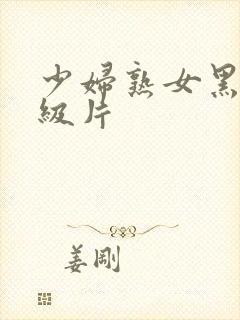 少婦熟女黑
級片
姜剛